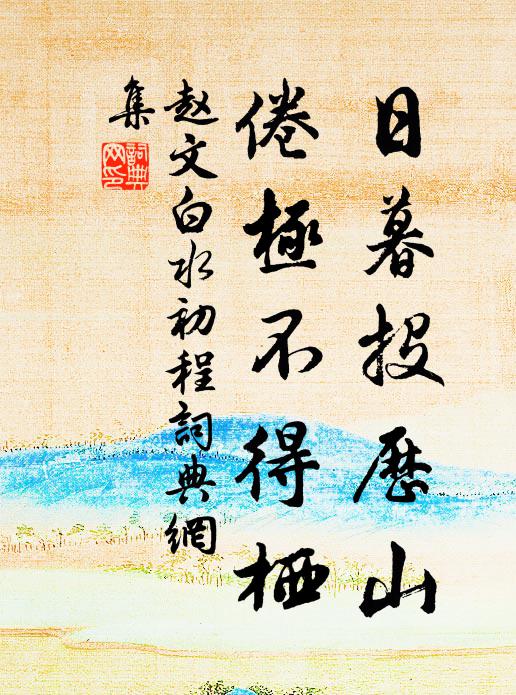 日暮投歷山
倦極不得栖
赵文白水初程詞典網
集
詞典网印